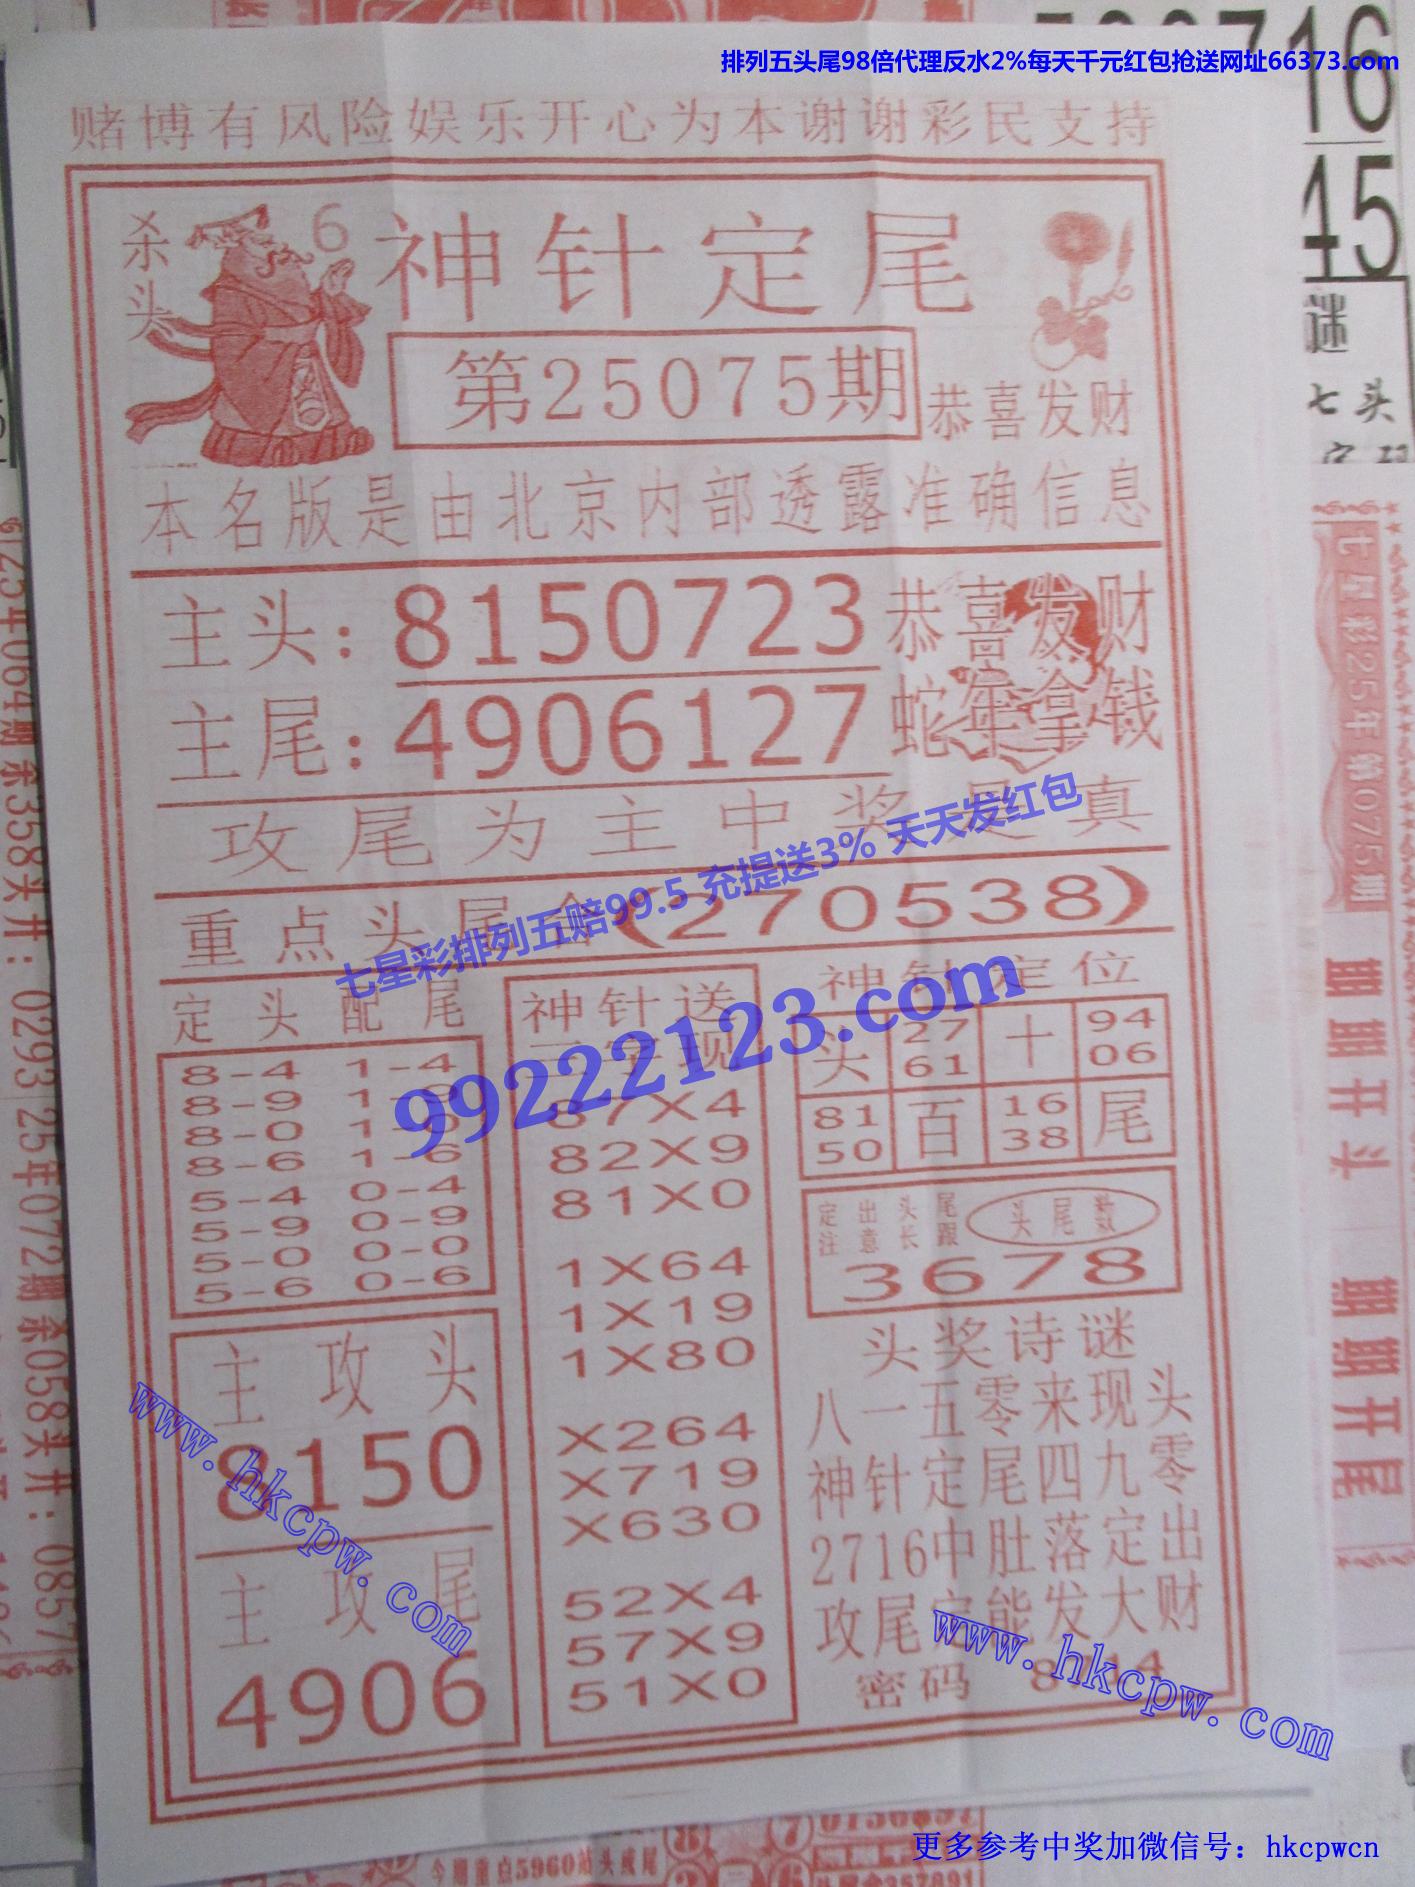 排列五头尾98倍代理反水2%每天千元红包抢送网址66373.com
16
45
谜
七头
赌博有风险娱乐开心为本谢谢彩民支持
杀头
6
神针定尾
第25075期
恭喜发财
本名版是由北京内部透露准确信息
主头:8150723
恭喜发财
主尾:4906127
蛇年拿钱
攻尾为主中奖是真
重点头尾合(270538)
七星彩排列五赔99.5 充提送3% 天天发红包
99222123.com
定头配尾
8-4 1-4
8-9 1-9
8-0 1-0
8-6 1-6
5-4 0-4
5-9 0-9
5-0 0-0
5-6 0-6
主攻头
8150
主攻尾
4906
神针送
三字现
87X4
82X9
81X0
1X64
1X19
1X80
X264
X719
X630
52X4
57X9
51X0
神针定位
头 27 十 94
61 06
81 百 16 尾
50 38
定出头尾
注意长跟
头尾数
3678
头奖诗谜
八一五零来现头
神针定尾四九零
2716中肚落定出
攻尾定能发大财
密码
www.hkcpw.com
www.hkcpw.com
七星彩25年第075期
期期开头
期期开尾
25年064期杀358头开:0293
25年072期杀058头开:0857
今期重点5960站头或尾
更多参考中奖加微信号：hkcpwcn